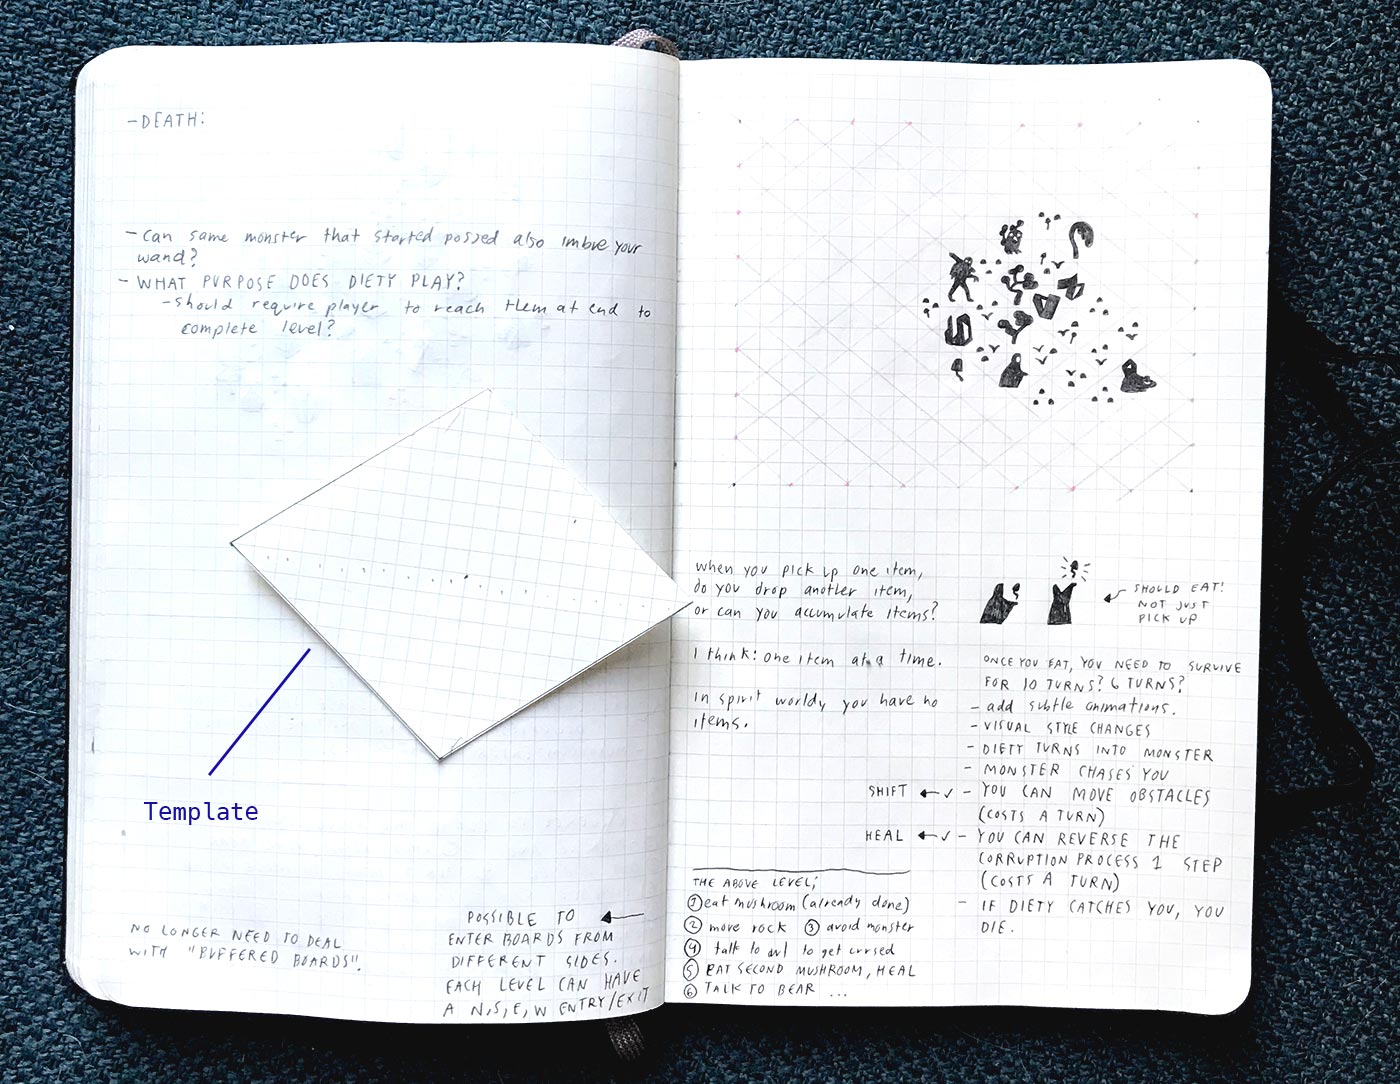 -DEATH:
- Can same monster that started possed also imbue your
wand?
- WHAT PURPOSE DOES DIETY PLAY?
- Should require player to reach them at end to
complete level?
Template
NO LONGER NEED TO DEAL
WITH "BUFFERED BOARDS".
POSSIBLE TO ←
ENTER BOARDS FROM
DIFFERENT SIDES.
EACH LEVEL CAN HAVE
A N,S,E,W ENTRY/EXIT
when you pick up one item,
do you drop another item,
or can you accumulate items?
I think: one item at a time.
In spirit worldy you have no
items.
← SHOULD EAT!
NOT JUST
PICK UP
ONCE YOU EAT, YOU NEED TO SURVIVE
FOR 10 TURNS? 6 TURNS?
- add subtle animations.
- VISUAL STYLE CHANGES
- DIETY TURNS INTO MONSTER
- MONSTER CHASES YOU
SHIFT ← ✓ - YOU CAN MOVE OBSTACLES
(COSTS A TURN)
HEAL ← ✓ - YOU CAN REVERSE THE
CORRUPTION PROCESS 1 STEP
(COSTS A TURN)
- IF DIETY CATCHES YOU, YOU
DIE.
THE ABOVE LEVEL;
① eat mushroom (already done)
② move rock ③ avoid monster
④ talk to owl to get cursed
⑤ EAT SECOND MUSHROOM, HEAL
⑥ TALK TO BEAR ...